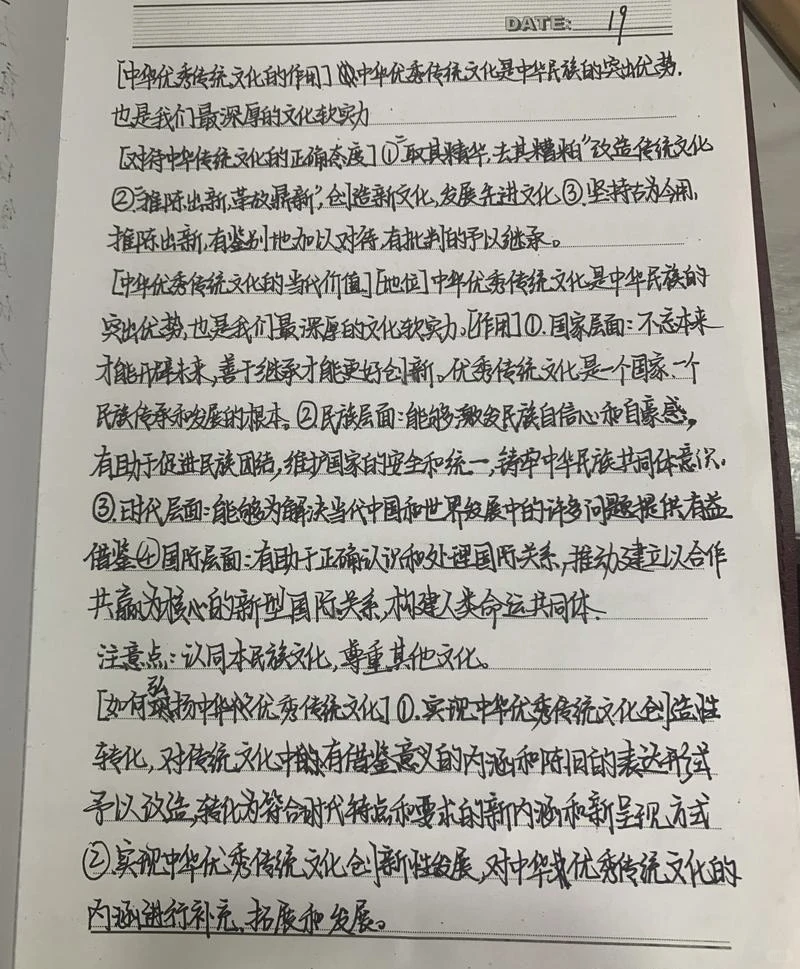 DATE: 19
[中华优秀传统文化的作用] ①中华优秀传统文化是中华民族的突出优势.
也是我们最深厚的文化软实力
[对待中华传统文化的正确态度] ①"取其精华,去其糟粕"改造传统文化
②"推陈出新,革故鼎新",创造新文化,发展先进文化 ③.坚持古为今用,
推陈出新,有鉴别地加以对待,有批判的予以继承。
[中华优秀传统文化的当代价值] [地位] 中华优秀传统文化是中华民族的
突出优势,也是我们最深厚的文化软实力。[作用] ①.国家层面:不忘本来
才能开辟未来,善于继承才能更好创新。优秀传统文化是一个国家、一个
民族传承和发展的根本。②民族层面:能够激发民族自信心和自豪感,
有助于促进民族团结,维护国家的安全和统一,铸牢中华民族共同体意识.
③.时代层面:能够为解决当代中国和世界发展中的许多问题提供有益
借鉴④国际层面:有助于正确认识和处理国际关系,推动建立以合作
共赢为核心的新型国际关系,构建人类命运共同体.
注意点:认同本民族文化,尊重其他文化。
[如何弘扬中华优秀传统文化] ①.实现中华优秀传统文化创造性
转化,对传统文化中的有借鉴意义的内涵和陈旧的表达形式
予以改造,转化为符合时代特点和要求的新内涵和新呈现方式
②.实现中华优秀传统文化创新性发展,对中华优秀传统文化的
内涵进行补充、拓展和发展。